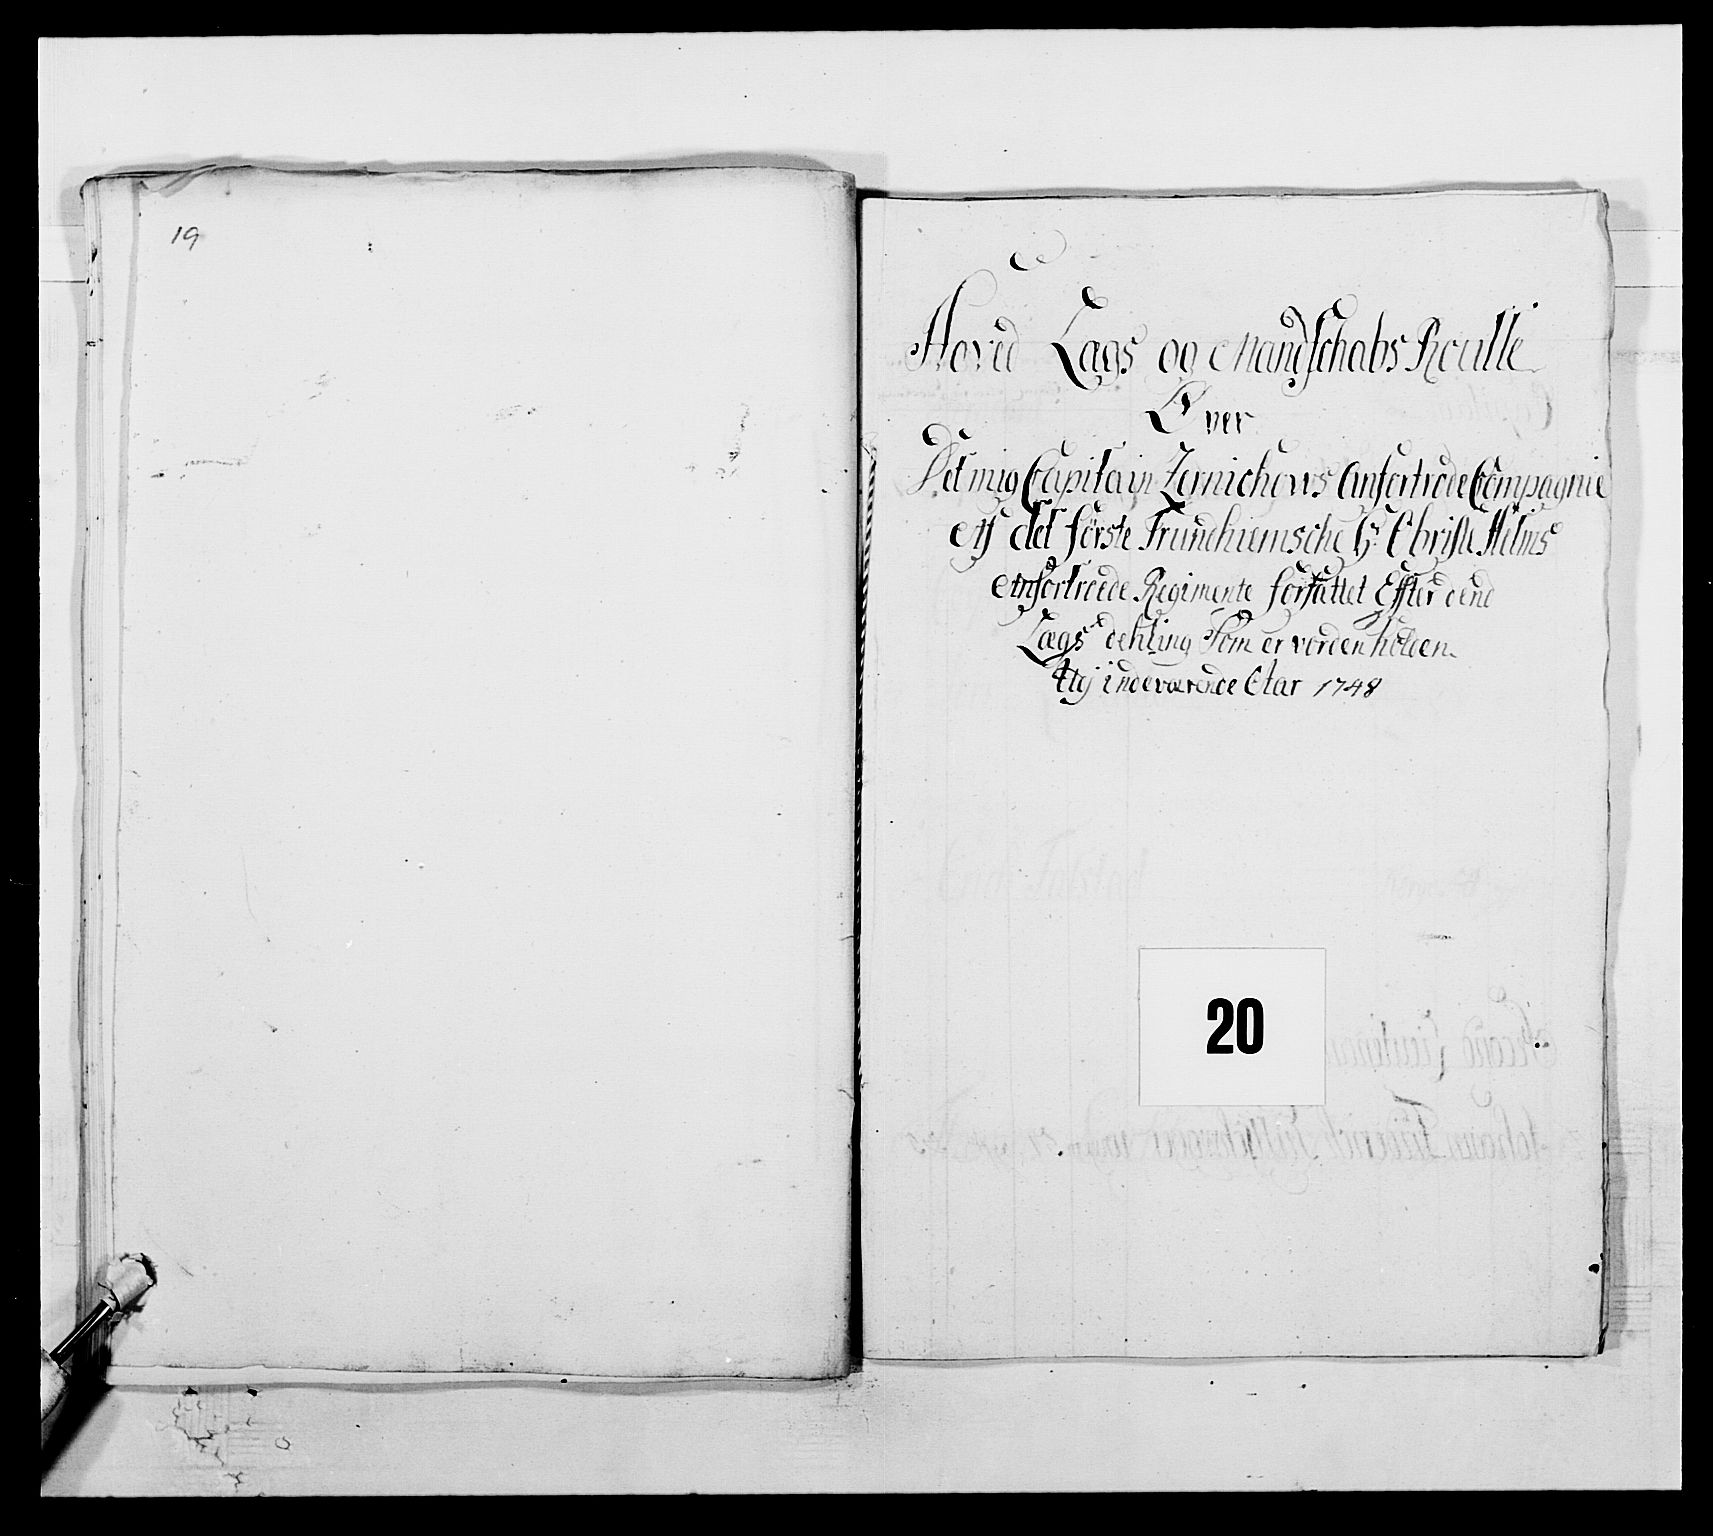 19
Hoved Lægs og Mandschabs Roulle
Over
Det mig Capitain Zernichows Anfortrode Compagnie
Af det første Trundhiemsche Hr Obriste Helms
Anfortroede Regimente forfattet Effter dend
Lægs dehling Som er vorden holden
Udj indeværende Aar 1748
20